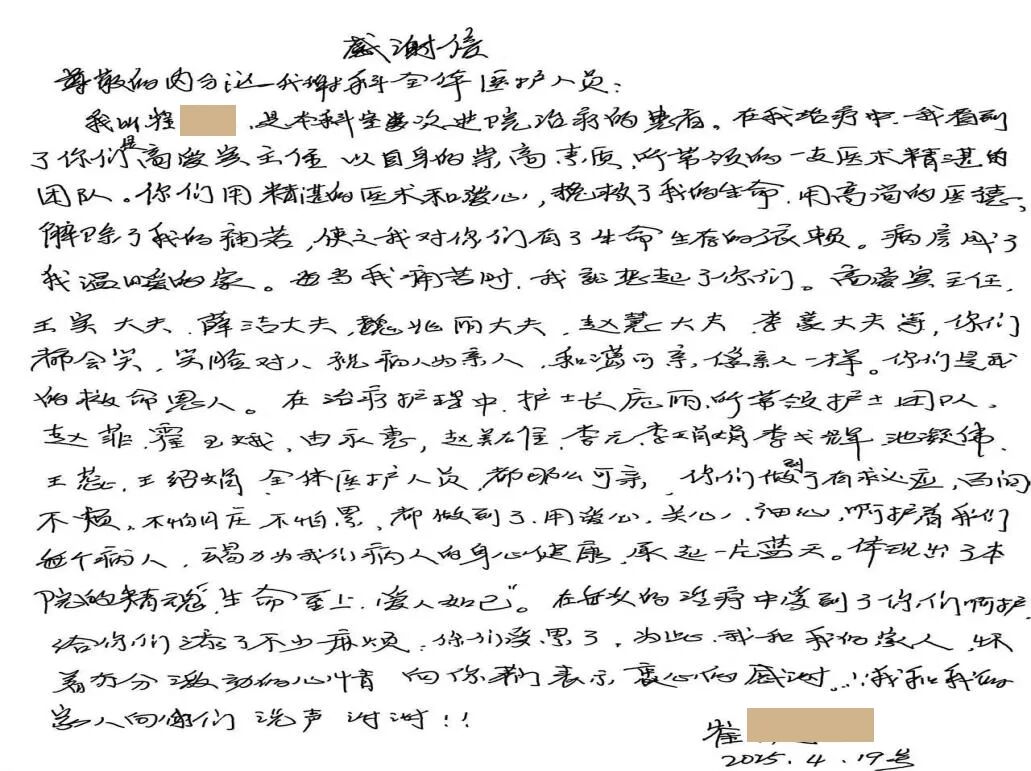 感谢信
尊敬的内分泌一代谢科全体医护人员：
我叫崔 是本科室多次进院治疗的患者。在我治疗中.我看到
了你们是高爱宾主任以自身的崇高素质,所带领的一支医术精湛的
团队。你们用精湛的医术和爱心,挽救了我的生命.用高尚的医德、
解除了我的痛苦,使之我对你们有了生命生存的依赖。病房成了
我温暖的家。每当我痛苦时.我就想起了你们。高爱宾主任.
王笑大夫.薛洁大夫,魏兆丽大夫,赵慧大夫.李蔓大夫等,你们
都会笑,笑脸对人.视病人为亲人,和蔼可亲,像亲人一样。你们是我
的救命恩人。在治疗护理中.护士长庞丽.所带领护士团队、
赵菲.霍玉娥、由永惠,赵 佳.李元.李娟娟 李 辉 池凝伟.
王蕊.王绍娟 全体医护人员.都那么可亲.你们做到了有求必应,百问
不烦,不怕脏不怕累、都做到了.用爱心.关心,细心,呵护着我们
每个病人,竭力为我们病人的身心健康.承起一片蓝天。体现出了本
院的精魂"生命至上.爱人如己"。在每次的治疗中受到了你们呵护.
给你们添了不少麻烦.你们受累了.为此.我和我的家人.怀
着万分激动的心情 向你们表示衷心的感谢...!我和我的
家人向你们说声谢谢!!
崔
2025.4.19号